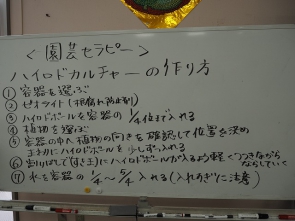 ＜園芸セラピー＞
ハイロドカルチャーの作り方
①容器を選ぶ
②ゼオライト(根腐れ防止剤)
③ハイロドボールを容器の1/4位まで入れる
④植物を選ぶ
⑤容器の中へ植物の向きを確認して位置を決め
ハイロドボールを少しずつ入れる
⑥割りばしで(すき間)にハイロドボールが入るよう軽くつつきながら
ならしていく
⑦水を容器の1/4〜5/4入れる(入れすぎに注意)